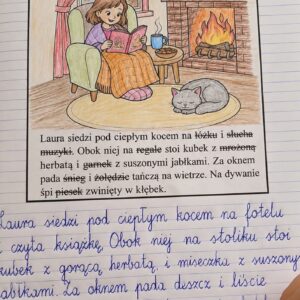 Laura siedzi pod ciepłym kocem na łóżku i słucha
muzyki. Obok niej na regale stoi kubek z mrożoną
herbatą i garnek z suszonymi jabłkami. Za oknem
pada śnieg i żołędzie tańczą na wietrze. Na dywanie
śpi piesek zwinięty w kłębek.
Laura siedzi pod ciepłym kocem na fotelu
i czyta książkę. Obok niej na stoliku stoi
kubek z gorącą herbatą, i miseczka z suszony
jabłkami. Za oknem pada deszcz i liście